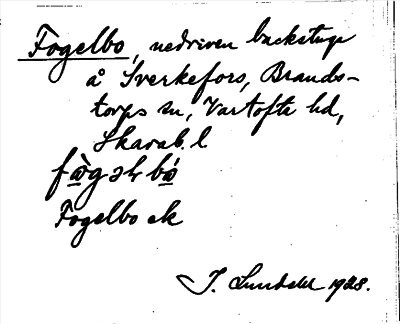 Fogelbo, nedriven backstuga
å Sverkefors, Brands-
torps sn, Vartofta hd,
Skarab. l
Fogelbo ek
J. Sundahl 1928.